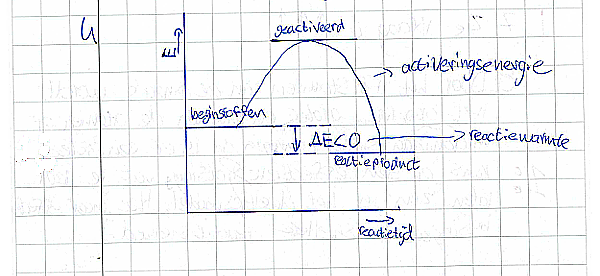 4
geactiveerd
E
activeringsenergie
beginstoffen
ΔE<0
reactiewarmte
reactieproduct
reactietijd